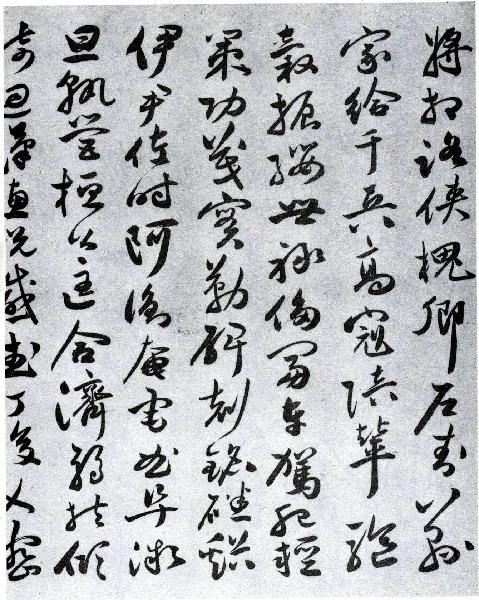 將相路俠槐卿戶封八縣
家給千兵高冠陪輦驅
轂振纓世祿侈富車駕肥輕
策功茂實勒碑刻銘磻谿
伊尹佐時阿衡奄宅曲阜微
旦孰營桓公匡合濟弱扶傾
綺迴漢惠說感武丁俊乂密